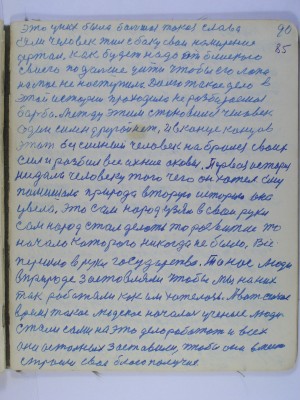 это у них была богатая такая слава 90
Сам человек жил с баку свои намерения 85
держал, как будет надо от близкого
своего подальше уйти чтобы его лапа
на том не наступила. Долго такое дело в
этой истории проходило не разбираемая
борьба. Между этим становился человек
один силен другой нет, и в конце концов
этот бусиньий человек набрался своих
сил и разбил все ихние оковы. Первая история
не дала человеку того чего он хотел ему
помешала природа вторую историю она
увела. Это сам народ узяв в свои руки
сам народ стал делать то развитие то
начало которого никогда не было. Всё
перешло в руки государства. То нас люди
в природе заставляли чтобы мы на них
так работали как им хотелось. А вот в такое
время такое людское начало ученые люди
стали сами на это дело работать и всех
они остальных заставили, чтобы они вместе
строили свое благополучие